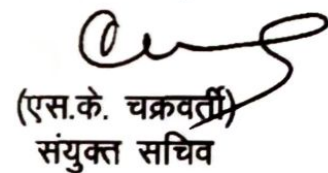 (एस.के. चक्रवर्ती)
संयुक्त सचिव